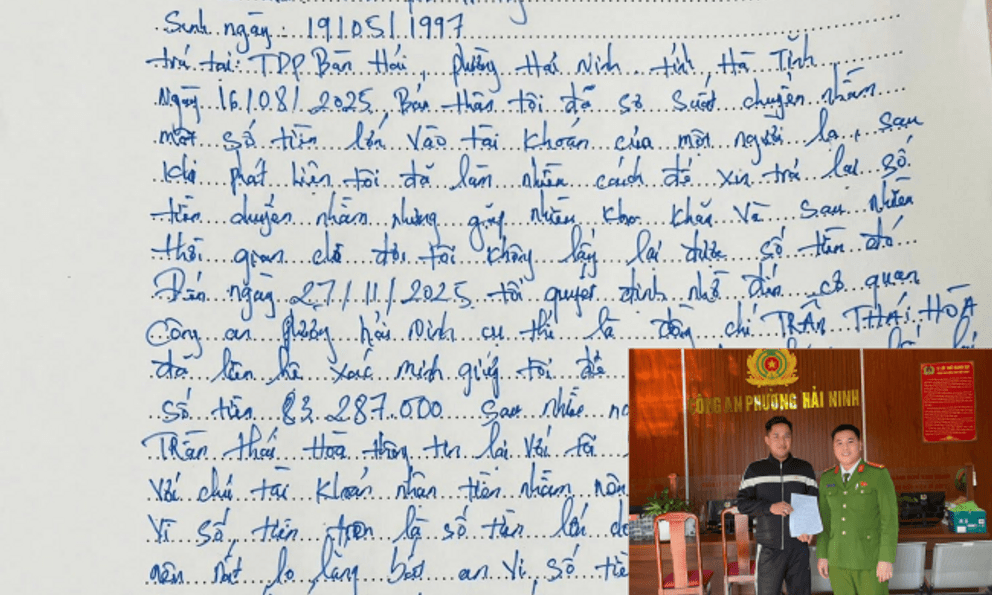 Sinh ngày: 19/05/1997
trú tại: TDP Bàn Hải, phường Hải Ninh tỉnh Hà Tĩnh
Ngày 16/08/2025 Bản thân tôi đã sơ suất chuyển nhầm
một số tiền lớn vào tài khoản của một người lạ, sau
khi phát hiện tôi đã làm nhiều cách để xin trả lại số
tiền chuyển nhầm nhưng gặp nhiều khó khăn và sau nhiều
thời gian chờ đợi tôi không lấy lại được số tiền đó
Đến ngày 27/11/2025 tôi quyết định nhờ đến cơ quan
Công an phường hải Ninh cụ thể là đồng chí TRẦN THÁI HÒA
đã liên hệ xác minh giúp tôi để
số tiền 83.287.000 sau nhiều
Trần thái Hoà thông tin lại với tôi
với chủ tài khoản nhận tiền nhầm
Vì số tiền trên là số tiền lớn
nên rất lo lắng bất an vì số tiền
CÔNG AN PHƯỜNG HẢI NINH